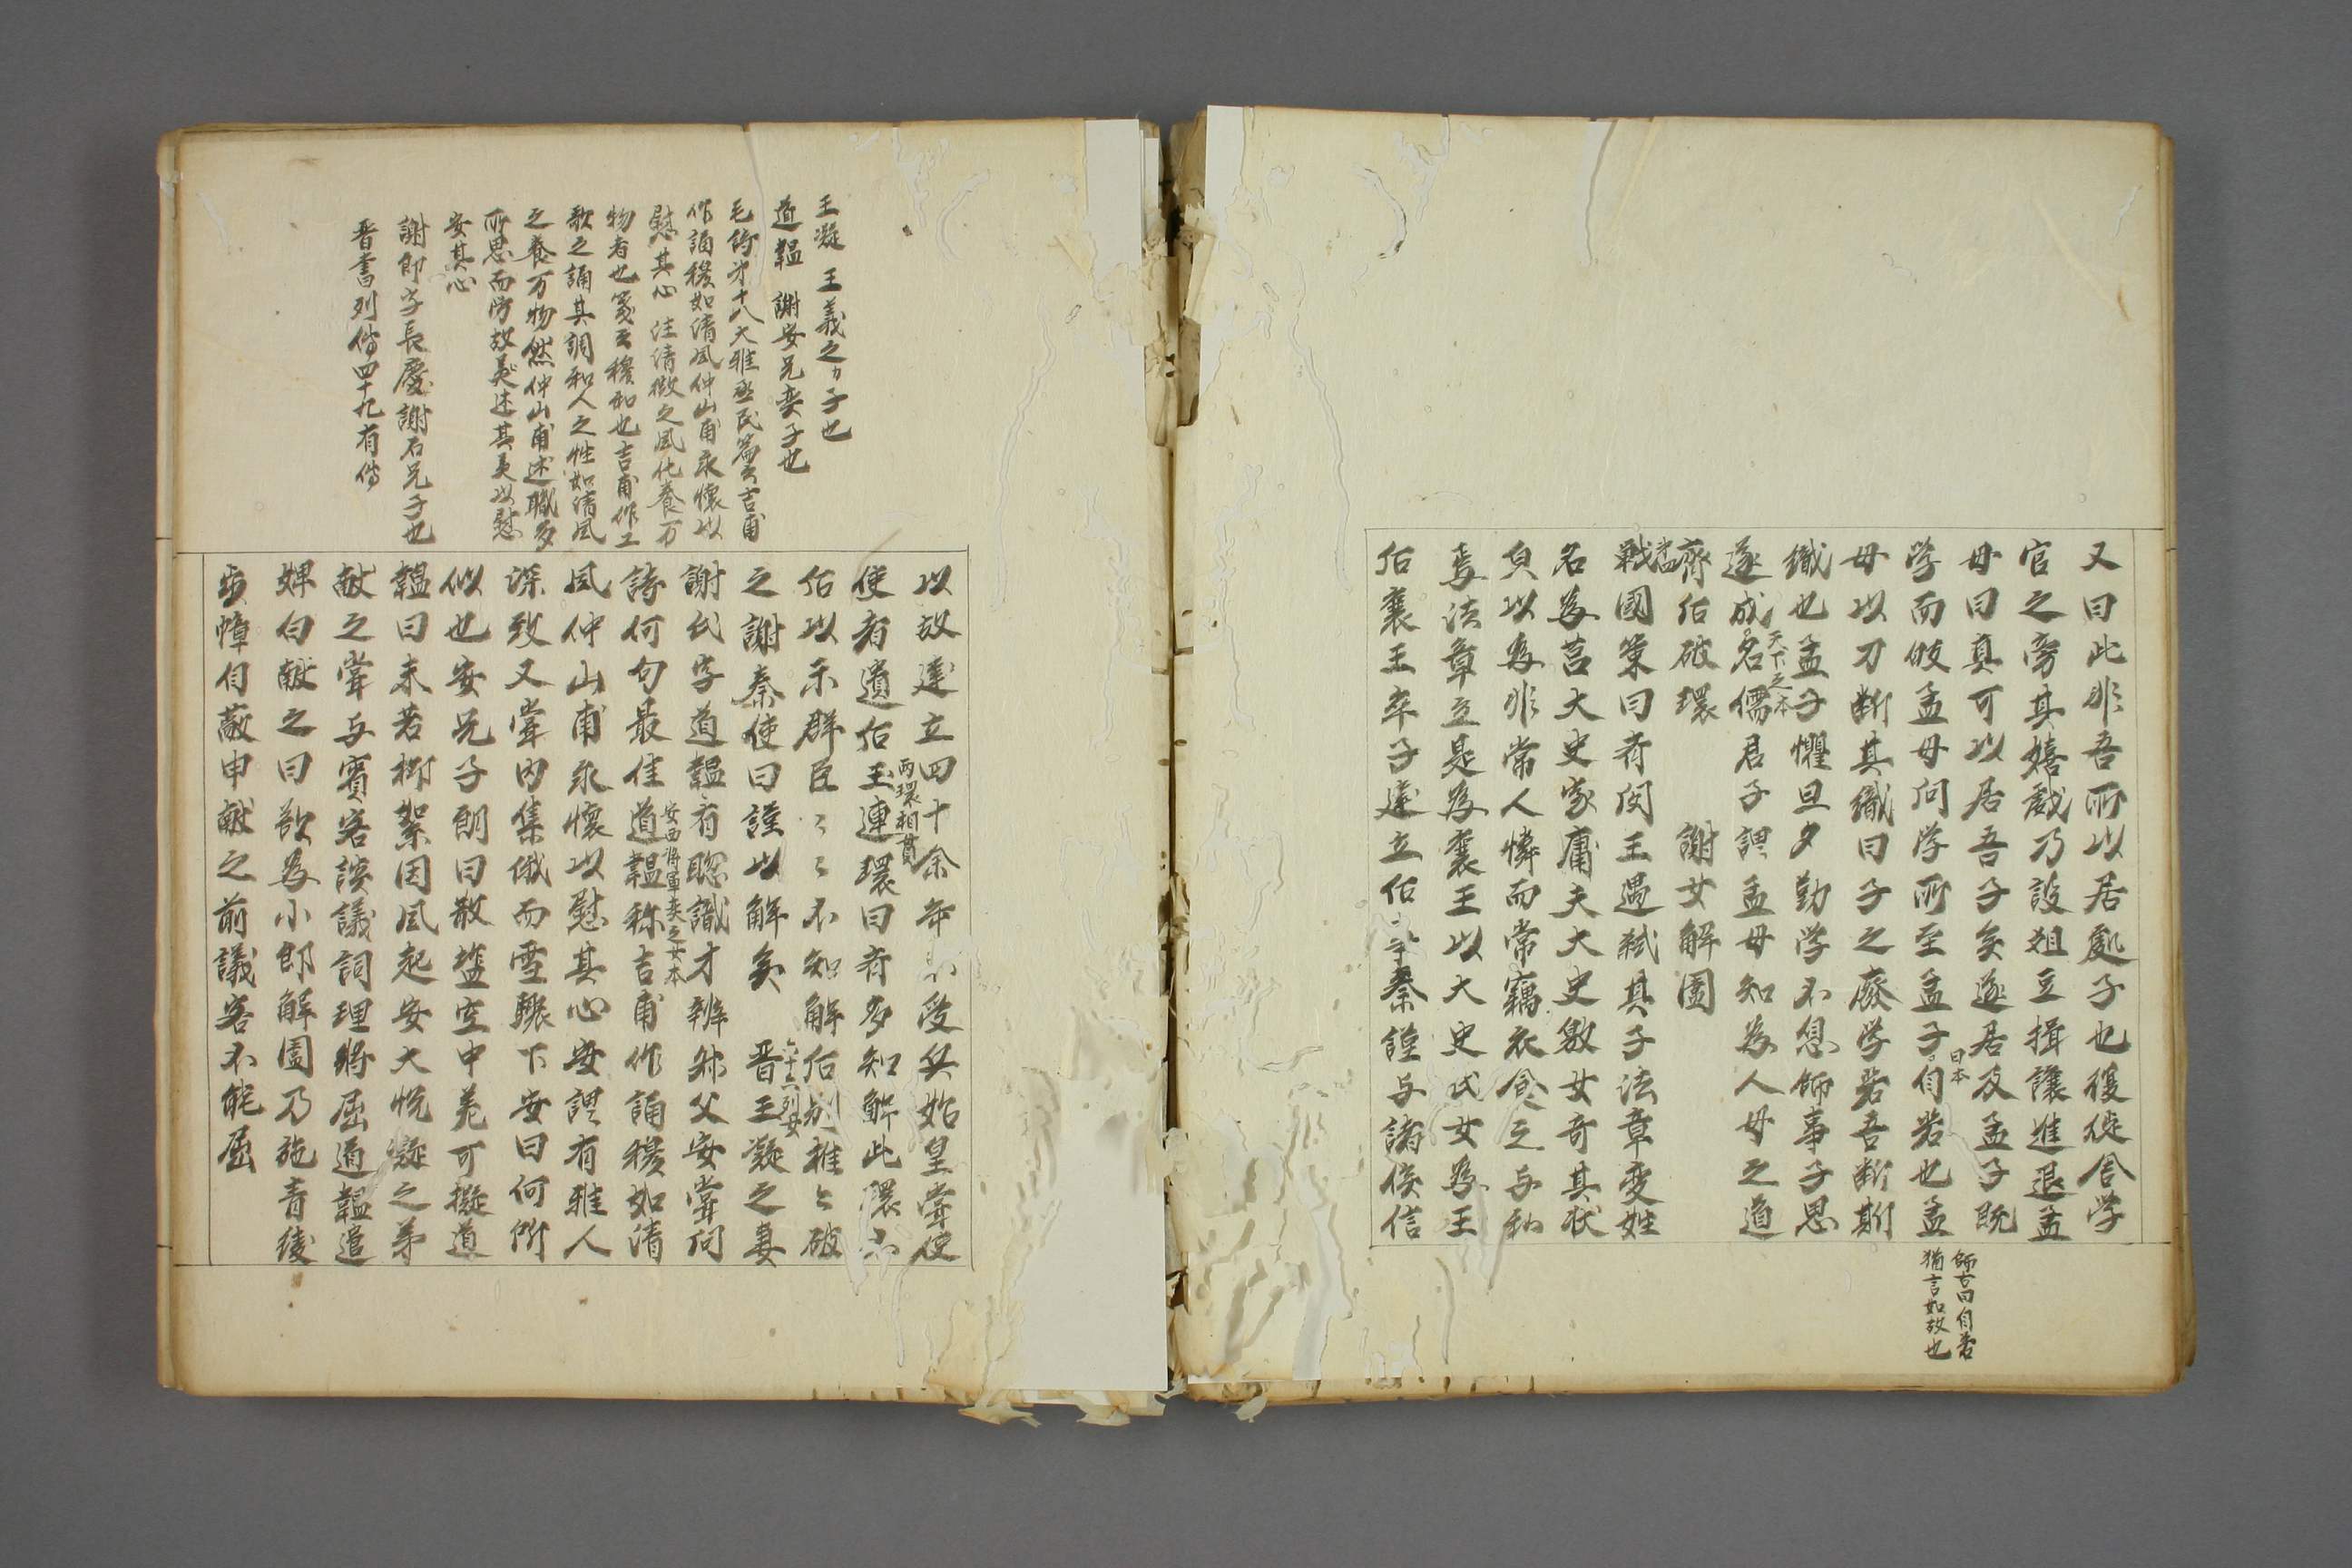 又曰此非吾所以居處子也復徙舍学
官之旁其嬉戯乃設俎豆揖讓進退孟
母曰真可以居吾子矣遂居及孟子既
学而皈孟母问学所至孟子自若也孟
曰本
師古曰自若
猶言如故也
母以刀断其織曰子之廢学若吾断斯
織也孟子懼旦夕勤学不息師事子思
遂成名儒君子謂孟母知為人母之道
天下之本
齊后破環　謝女解圍
戰國策曰斉閔王遇弒其子法章変姓
名為莒大史家庸夫大史敫女奇其状
皃以為非常人憐而常竊衣食之与私
焉法章立是為襄王以大史氏女為王
后襄王卒子建立后事秦謹与諸侯信
以故建立四十余年不受兵始皇嘗使
使者遺后玉連環曰斉多知解此環不
兩環相貫
后以示群臣〻〻不知解后引椎〻破
之謝秦使曰謹以解矣　晋王凝之妻
六十六列女
謝氏字道韞有聡識才辨叔父安嘗问
詩何句最佳道韞称吉甫作誦穆如清
安西将軍奕之女本
風仲山甫永懷以慰其心安謂有雅人
深致又嘗内集俄而雪驟下安曰何所
似也安兄子朗曰散塩空中差可擬道
韞曰未若柳絮因風起安大悦凝之弟
献之嘗与賓客談議詞理将屈道韞遣
婢白献之曰欲為小郎解圍乃施青綾
步幛自蔽申献之前議客不能屈
王凝　王義之カ子也
道韞　謝安兄奕子也
毛詩第十八大雅烝民篇云吉甫
作誦穆如清風仲山甫永懷以
慰其心　注清微之風化養万
物者也箋云穆和也吉甫作工
歌之誦其調和人之性如清風
之養万物然仲山甫述職多
所思而労故美述其美以慰
安其心
謝郎字長慶謝石兄子也
晋書列傳四十九有傳